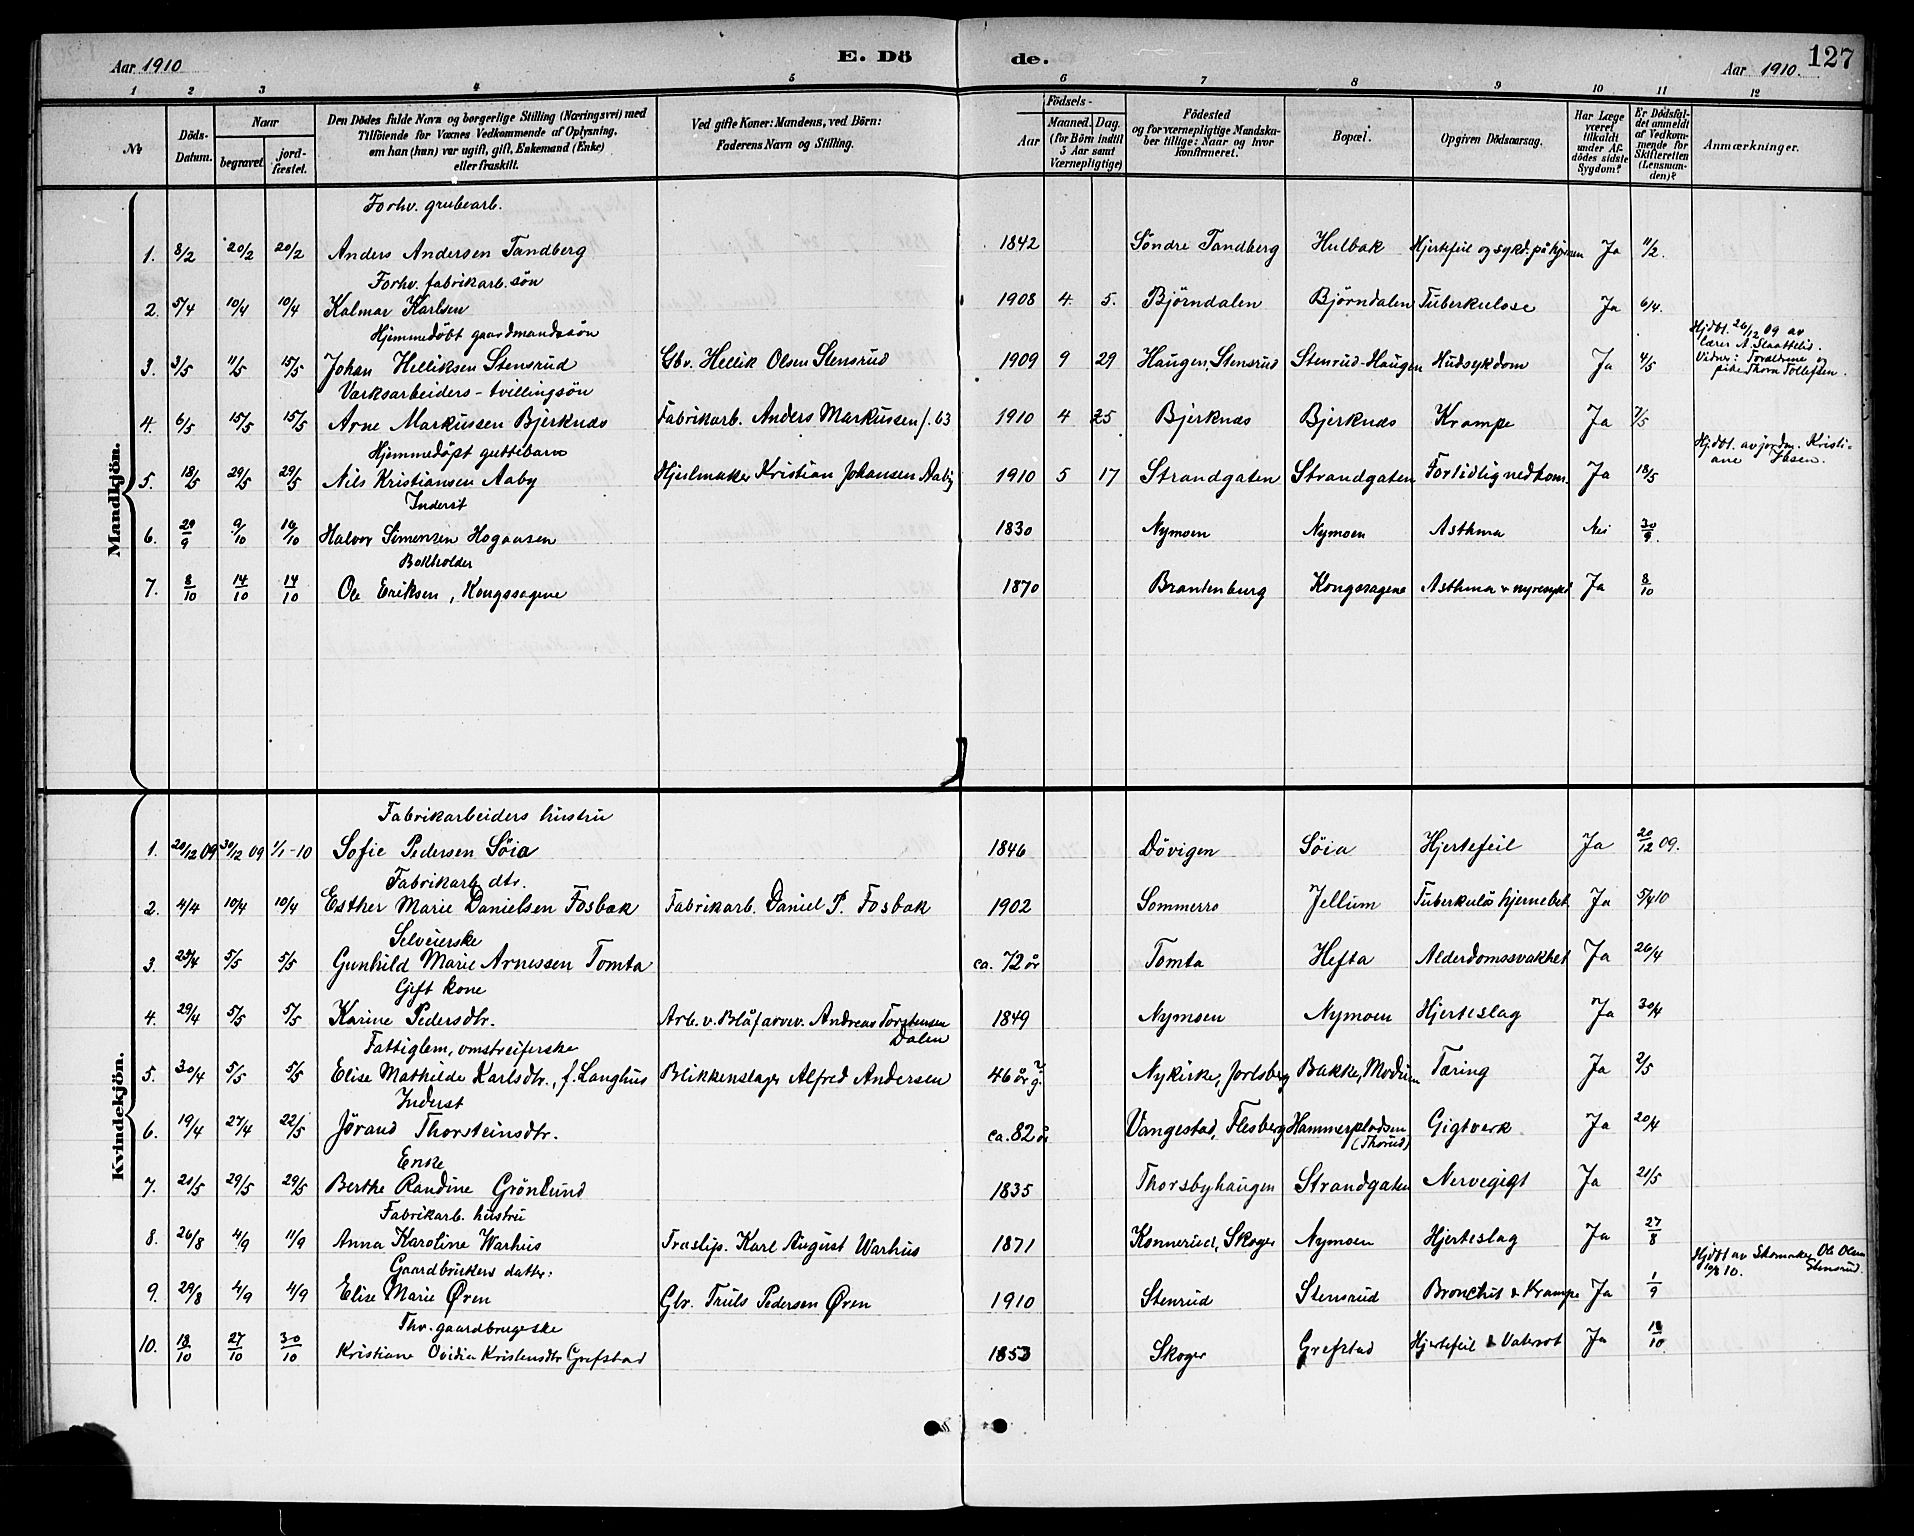 Aar 1910
E. Dö
de.
Aar 1910.
127
1 2 3 4 5 6 7 8 9 10 11 12
No
Döds-Datum.
Naar
begravet.
jord-fæstet.
Den Dödes fulde Navn og borgerlige Stilling (Næringsvei) med
Tilföiende for Voxnes Vedkommende af Oplysning,
om han (hun) var ugift, gift, Enkemand (Enke)
eller fraskilt.
Ved gifte Koner: Mandens, ved Börn:
Faderens Navn og Stilling.
Födsels-
Aar
Maaned.
Dag.
(for Börn indtil
5 Aar samt
Værnepligtige)
Födested
og for værnepligtige Mandska-
ber tillige: Naar og hvor
konfirmeret.
Bopæl.
Opgiven Dödsaarsag.
Har Læge
været
tilkaldt
under Af-
dödes sidste
Sygdom?
Er Dödsfal-
det anmeldt
af Vedkom-
mende for
Skifteretten
(Lensman-
den)?
Anmærkninger.
Mandkjön.
Forhv. grubearb.
1. 8/2 20/2 20/2 Anders Andersen Tandberg 1842 Söndre Tandberg Hulbak Hjertefeil og sykd. på hjernen Ja 11/2.
Forhv. fabrikarb. sön
2. 5/4 10/4 10/4 Kalmar Karlsen 1908 4. 5. Björndalen Björndalen Tuberkulose Ja 6/4.
Hjemmedöbt gaardmandssön
3. 3/5 11/5 15/5 Johan Helliksen Stensrud Gbr. Hellik Olsen Stensrud 1909 9 29 Haugen, Stensrud Stenrud-Haugen Hudsykdom Ja 4/5
Hjdöt. 26/12 09 av
lærer A. Slaattelid.
Vidner: Foraldrene og
pike Thora Tollefsen.
Varksarbeiders - tvillingsön
4. 6/5 15/5 15/5 Arne Markussen Bjerknæs Fabrikarb. Anders Markussen f. 63 1910 4 25 Bjerknæs Bjerknæs Krampe Ja 7/5
Hjemmedöpt guttebarn
5. 18/5 29/5 29/5 Nils Kristiansen Aaby Hjulmaker Kristian Johansen Aaby 1910 5 17 Strandgaten Strandgaten For tidlig nedkom. Ja 18/5
Hjdöt. av jordm. Kristi-
ane Ibsen.
Inderst
6. 29/9 9/10 16/10 Halvor Simensen Hogaasen 1830 Nymoen Nymoen Asthma Nei 30/9.
Bokholder
7. 8/10 14/10 14/10 Ole Eriksen, Kongssagene 1870 Brantenburg Kongssagene Asthma & nyresyke Ja 8/10
Kvindekjön.
Fabrikarbeiders hustru
1. 20/12 09 30/12 09 1/1-10 Sofie Pedersen Söia 1846 Dövigen Söia Hjertefeil Ja 20/12 09.
Fabrikarb. dtr.
2. 4/4 10/4 10/4 Esther Marie Danielsen Fosbak Fabrikarb. Daniel P. Fosbak 1902 Sommerro Jellum Tuberkulös hjernebet Ja 5/4 10
Selveierske
3. 25/4 5/5 5/5 Gunhild Marie Arnessen Tomta ca. 72 år Tomta Hefta Alderdomssvakhet Ja 26/4
Gift kone
4. 29/4 5/5 5/5 Karine Pedersdtr. Arb. v. Blåfarvev. Andreas Torstensen Dalen 1849 Nymoen Nymoen Hjerteslag Ja 30/4
Fattiglem, omstreiferske
5. 30/4 5/5 5/5 Elise Mathilde Karlsdtr., f. Langhus Blikkenslager Alfred Andersen 46 år g. Nykirke, Jarlsberg Bakke, Modum Tæring Ja 2/5
Inderst
6. 19/4 27/4 22/5 Jørand Thorsteinsdtr. ca. 82 år Vangestad, Flesberg Hammerpladsen (Thorud) Gigtverk Ja 20/4
Enke
7. 20/5 29/5 29/5 Berthe Randine Grönlund 1835 Thorsbyhaugen Strandgaten Nervegigt Ja 21/5
Fabrikarb. hustru
8. 26/8 4/9 11/9 Anna Karoline Warhus Træslip. Karl August Warhus 1871 Konnerud, Skoger Nymoen Hjerteslag Ja 27/8
Gaardbrukers datter:
9. 29/8 4/9 4/9 Elise Marie Øren Gbr. Truls Pedersen Øren 1910 Stenrud Stensrud Bronchit & Krampe Ja 1/9
Hjdöt av Skomaker Ole Olsen
10/8 10. Stensrud.
Fhv. gaardbrugerske
10. 18/10 27/10 30/10 Kristiane Ovidia Kristensdtr Grefstad 1853 Skoger Grefstad Hjertefeil & Vatersot Ja 18/10